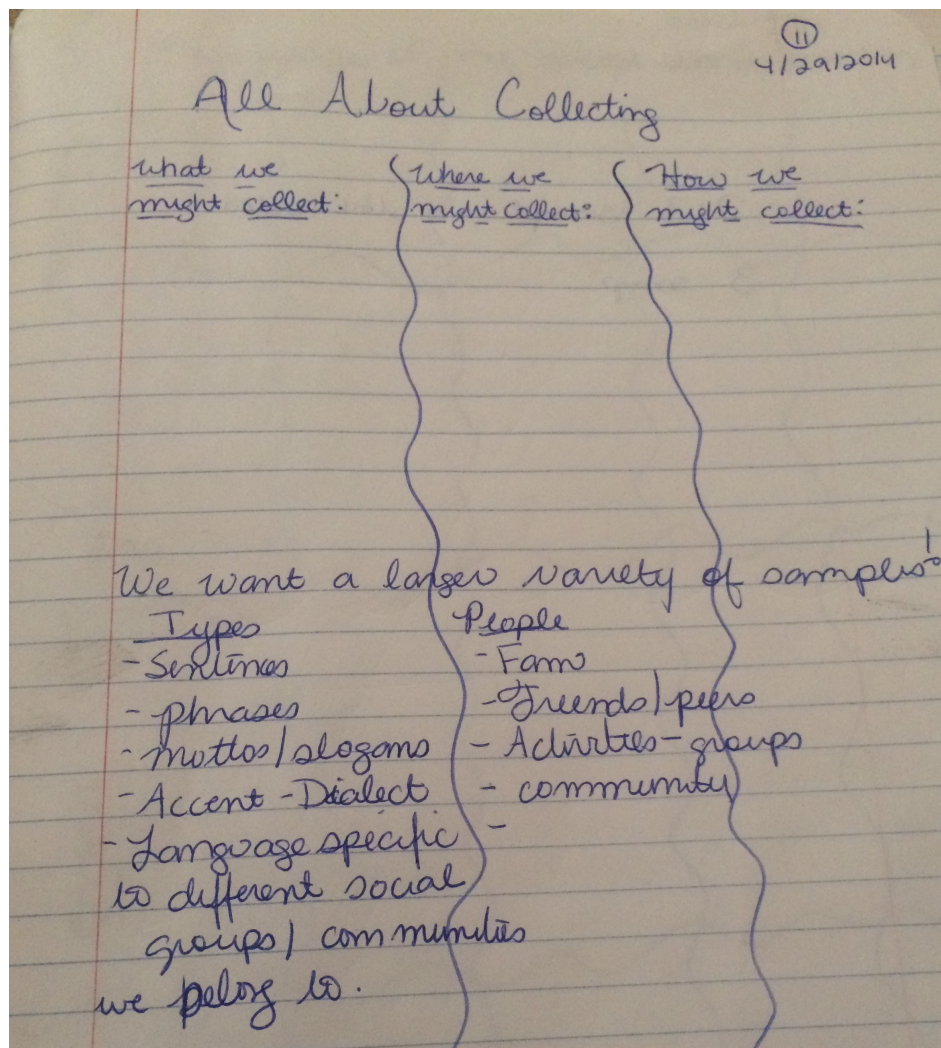 11
4/29/2014
All About Collecting
what we might collect:
Where we might collect:
How we might collect:
We want a larger variety of samples!
Types
- Sentences
- phrases
- mottos/slogans
- Accent - Dialect
- Language specific
to different social
groups/ communities
we belong to.
People
- Fam
- Friends/peers
- Activities - groups
- community
-